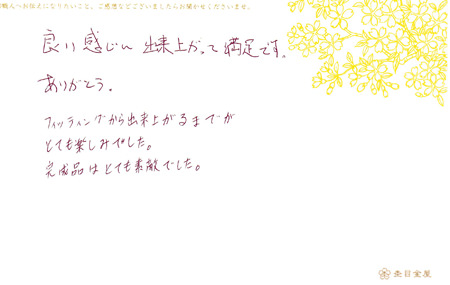 職人へお伝えになりたいこと、ご感想などございましたらお聞かせくださいませ。
良い感じに出来上がって満足です。
ありがとう。
フィッティングから出来上がるまでが
とても楽しみでした。
完成品はとても素敵でした。
杢目金屋